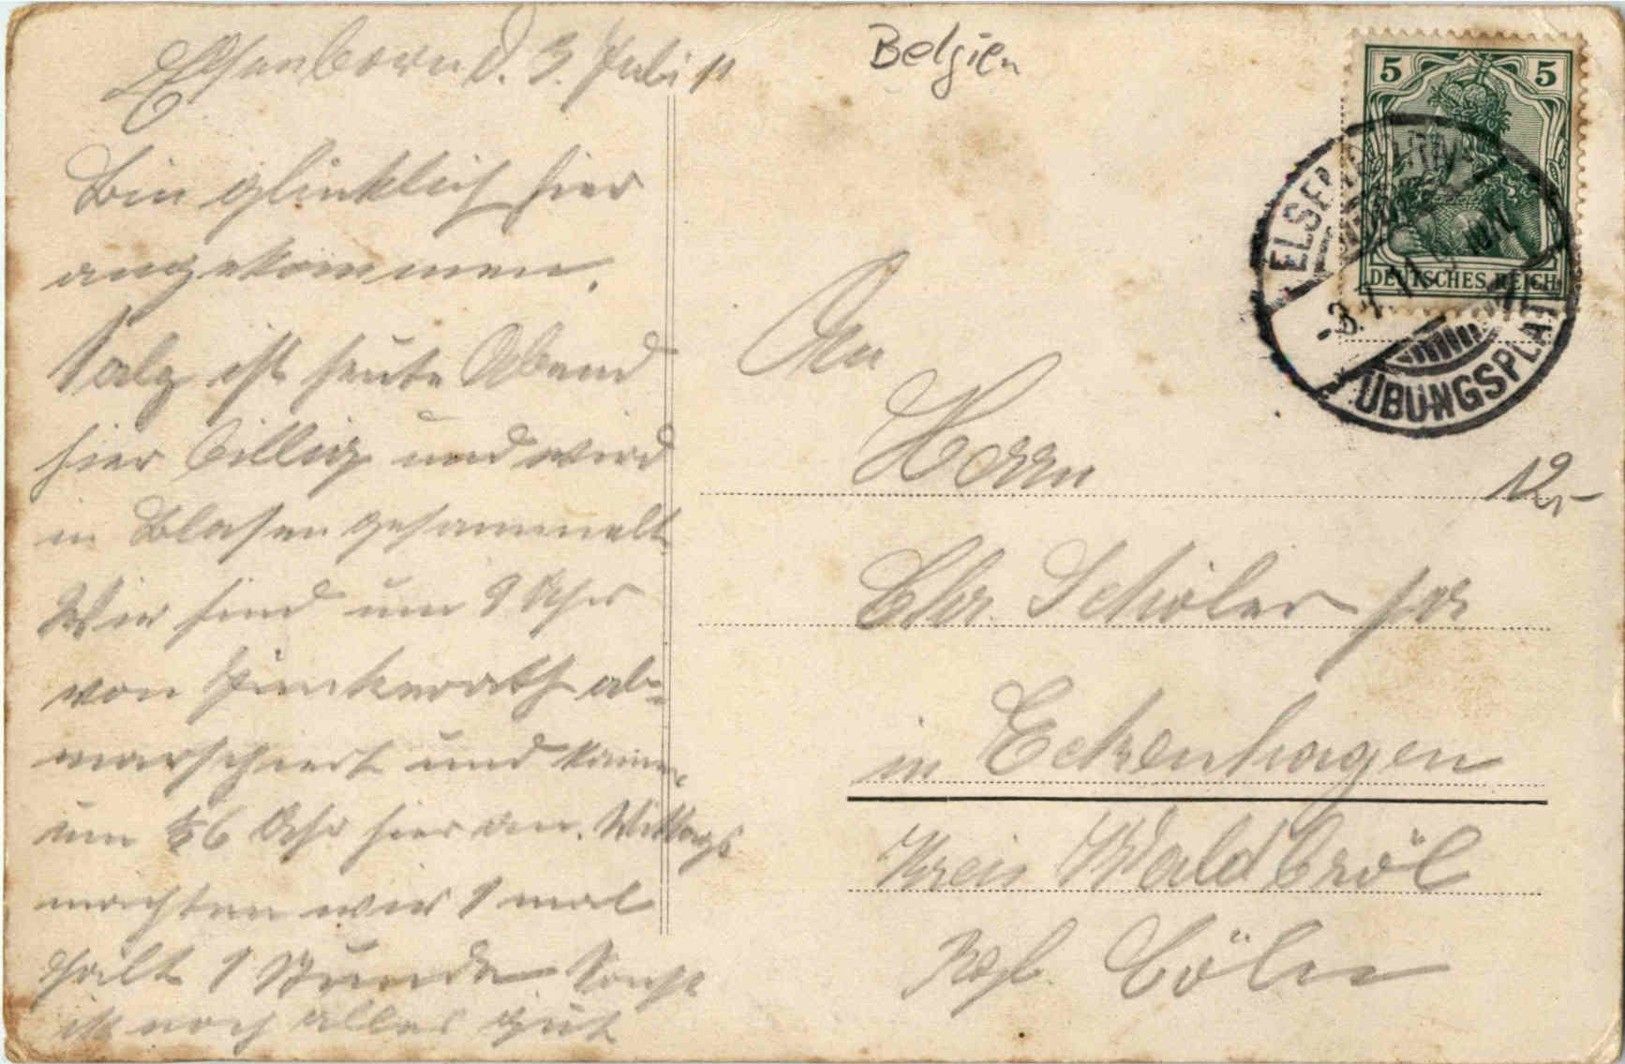 Elsenborn d. 3. Juli 11
Bin glücklich hier
angekommen.
Talg ist heute Abend
hier billig und wird
in Blasen gesammelt
Wir sind um 9 Uhr
von ab-
marschiert und kamen
um ½6 Uhr hier an. Mittags
machten wir 1 mal
Halt 1 Stunde Sonst
ist noch alles gut
Belgien
5 5
DEUTSCHES REICH
ELSENBORN
-3.7.11
ÜBUNGSPLATZ
An
Herrn
12,-
Chr. Schöler sor
in Eckenhagen
Kreis Waldbröl
Rgbz Cöln